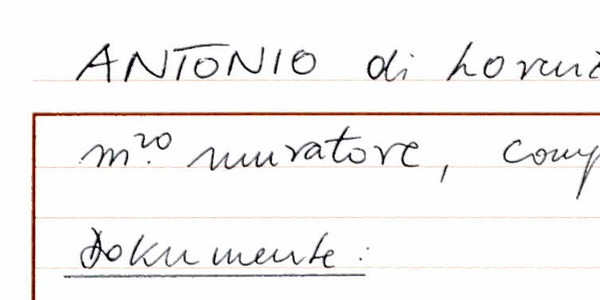 ANTONIO di Lorenz
m.ro muratore, comp
Dokumente: